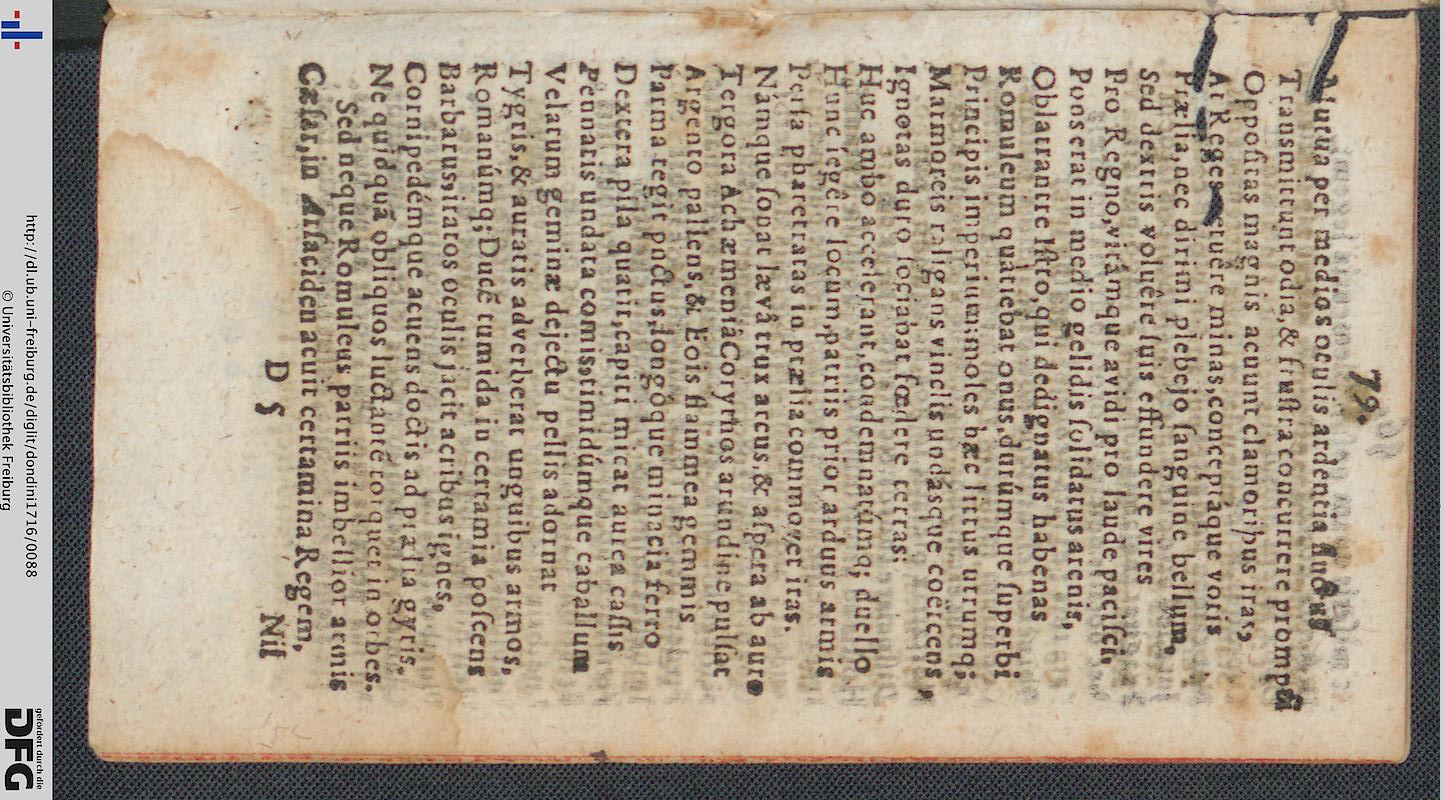 79.
Mutua per medios oculis ardentia
Transmittunt odia, & fruſtra concurrere prompti
Oppoſitas magnis acuunt clamoribus iras,
At Reges minas, conceptáque votis
Prælia, nec dirimi plebejo ſanguine bellum,
Sed dextris voluêre ſuis effundere vires
Pro Regno, vitámque avidi pro laude paciſci,
Pons erat in medio gelidis ſolidatus arenis,
Oblatrante Iſtro, qui dedignatus habenas
Romuleum quatiebat onus, durúmque ſuperbi
Principis imperium: moles hæc littus utrumq;
Marmoreis religans vinclis undásque coërcens,
Ignotas duro ſociabat fœdere terras:
Huc ambo accelerant, condemnatúmq; duello
Hunc legêre locum, patriis prior arduus armis
Perſa pharetratas in prælia commovet iras.
Námque ſonat lævâ trux arcus, & aſpera ab auro
Tergora Achæmeniâ Corythos arundine pulſat
Argento pallens, & Eois flammea gemmis
Parma tegit pectus, longóque minacia ferro
Dextera pila quatit, capiti micat aurea caſſis
Pennatis undata comis, timidúmque caballum
Velarum geminæ dejectu pellis adornat
Tygris, & auratis adverberat unguibus armos,
Romanúmq; Ducē tumida in certamia poſcens
Barbarus, iratos oculis jacit acribus ignes,
Cornipedémque acuens doctis ad prælia gyris.
Ne quidquā obliquos luctantē torquet in orbes.
Sed neque Romuleus patriis imbellior armis
Cæſar, in Aſaciden acuit certamina Regem,
D 5
Niſ
http://dl.ub.uni-freiburg.de/diglit/dondini1716/0088
© Universitätsbibliothek Freiburg
gefördert durch die
DFG